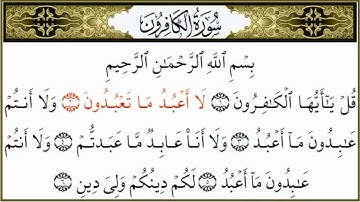 سُورَةُ الكَافِرُونَ
بِسْمِ ٱللَّهِ ٱلرَّحْمَٰنِ ٱلرَّحِيمِ
قُلْ يَٰٓأَيُّهَا ٱلْكَٰفِرُونَ ١ لَآ أَعْبُدُ مَا تَعْبُدُونَ ٢ وَلَآ أَنتُمْ
عَٰبِدُونَ مَآ أَعْبُدُ ٣ وَلَآ أَنَا۠ عَابِدٌ مَّا عَبَدتُّمْ ٤ وَلَآ أَنتُمْ
عَٰبِدُونَ مَآ أَعْبُدُ ٥ لَكُمْ دِينُكُمْ وَلِىَ دِينِ ٦